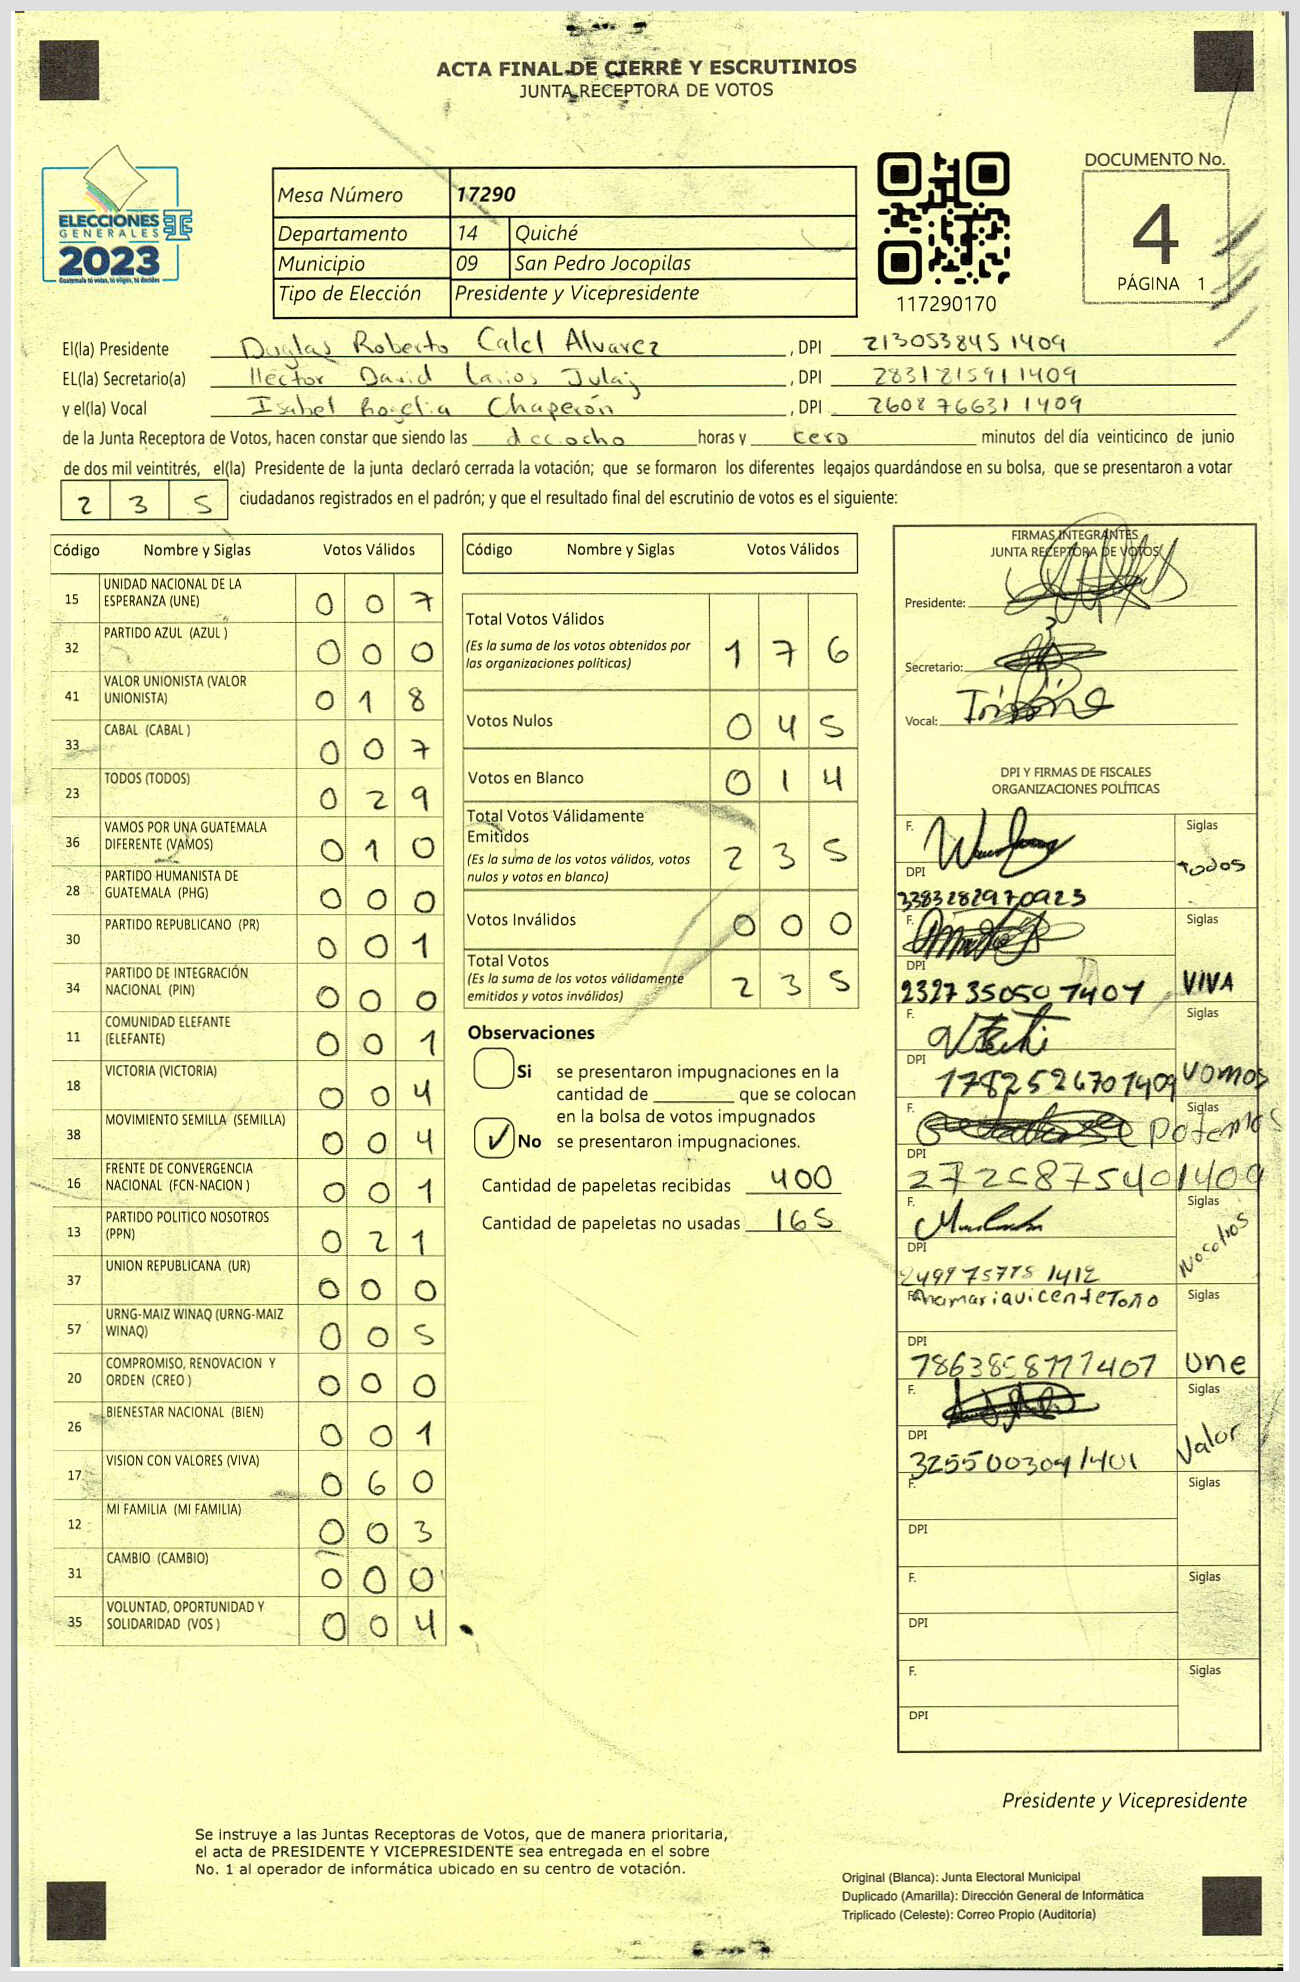 ACTA FINAL DE CIERRE Y ESCRUTINIOS
JUNTA RECEPTORA DE VOTOS
ELECCIONES
GENERALES
2023
Guatemala tú votas, tú eliges, tú decides
Mesa Número 17290
Departamento 14 Quiché
Municipio 09 San Pedro Jocopilas
Tipo de Elección Presidente y Vicepresidente
117290170
DOCUMENTO No.
4
PÁGINA 1
El(la) Presidente Duglas Roberto Calel Alvarez , DPI 2130538451409
EL(la) Secretario(a) Hector David Larios Julaj , DPI 2831215911409
y el(la) Vocal Isabel Rogelia Chaperón , DPI 2608766311409
de la Junta Receptora de Votos, hacen constar que siendo las dieciocho horas y cero minutos del día veinticinco de junio
de dos mil veintitrés, el(la) Presidente de la junta declaró cerrada la votación; que se formaron los diferentes legajos guardándose en su bolsa, que se presentaron a votar
2 3 5 ciudadanos registrados en el padrón; y que el resultado final del escrutinio de votos es el siguiente:
Código Nombre y Siglas Votos Válidos
15 UNIDAD NACIONAL DE LA ESPERANZA (UNE) 0 0 7
32 PARTIDO AZUL (AZUL ) 0 0 0
41 VALOR UNIONISTA (VALOR UNIONISTA) 0 1 8
33 CABAL (CABAL ) 0 0 7
23 TODOS (TODOS) 0 2 9
36 VAMOS POR UNA GUATEMALA DIFERENTE (VAMOS) 0 1 0
28 PARTIDO HUMANISTA DE GUATEMALA (PHG) 0 0 0
30 PARTIDO REPUBLICANO (PR) 0 0 1
34 PARTIDO DE INTEGRACIÓN NACIONAL (PIN) 0 0 0
11 COMUNIDAD ELEFANTE (ELEFANTE) 0 0 1
18 VICTORIA (VICTORIA) 0 0 4
38 MOVIMIENTO SEMILLA (SEMILLA) 0 0 4
16 FRENTE DE CONVERGENCIA NACIONAL (FCN-NACION ) 0 0 1
13 PARTIDO POLITICO NOSOTROS (PPN) 0 2 1
37 UNION REPUBLICANA (UR) 0 0 0
57 URNG-MAIZ WINAQ (URNG-MAIZ WINAQ) 0 0 5
20 COMPROMISO, RENOVACION Y ORDEN (CREO ) 0 0 0
26 BIENESTAR NACIONAL (BIEN) 0 0 1
17 VISION CON VALORES (VIVA) 0 6 0
12 MI FAMILIA (MI FAMILIA) 0 0 3
31 CAMBIO (CAMBIO) 0 0 0
35 VOLUNTAD, OPORTUNIDAD Y SOLIDARIDAD (VOS ) 0 0 4
Código Nombre y Siglas Votos Válidos
Total Votos Válidos 1 7 6
(Es la suma de los votos obtenidos por
las organizaciones políticas)
Votos Nulos 0 4 5
Votos en Blanco 0 1 4
Total Votos Válidamente
Emitidos 2 3 5
(Es la suma de los votos válidos, votos
nulos y votos en blanco)
Votos Inválidos 0 0 0
Total Votos 2 3 5
(Es la suma de los votos válidamente
emitidos y votos inválidos)
Observaciones
Si se presentaron impugnaciones en la
cantidad de ________ que se colocan
en la bolsa de votos impugnados
✓ No se presentaron impugnaciones.
Cantidad de papeletas recibidas 400
Cantidad de papeletas no usadas 165
FIRMAS INTEGRANTES
JUNTA RECEPTORA DE VOTOS
Presidente:
Secretario:
Vocal:
DPI Y FIRMAS DE FISCALES
ORGANIZACIONES POLÍTICAS
F. Siglas
DPI Todos
3383282970923
F. Siglas
DPI VIVA
2327350507407
F. Siglas
DPI Vomos
1782526701409
F. Siglas
Potemos
DPI
2726875401409
F. Siglas
DPI Nosotros
F. Anamariavicente Toño Siglas
DPI
7863858777407 une
F. Siglas
DPI Valor
3255003091401
F. Siglas
DPI
F. Siglas
DPI
F. Siglas
DPI
Presidente y Vicepresidente
Se instruye a las Juntas Receptoras de Votos, que de manera prioritaria,
el acta de PRESIDENTE Y VICEPRESIDENTE sea entregada en el sobre
No. 1 al operador de informática ubicado en su centro de votación.
Original (Blanca): Junta Electoral Municipal
Duplicado (Amarilla): Dirección General de Informática
Triplicado (Celeste): Correo Propio (Auditoría)